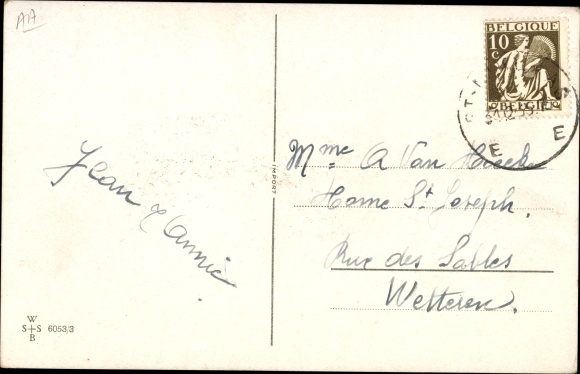 AA
BELGIQUE
10
c
BELGIË
E E
Jean & Annie
IMPORT
Mme A Van Hoeck
Home St Joseph.
Rue des Sables
Wetteren.
W
S+S 6053/3
B